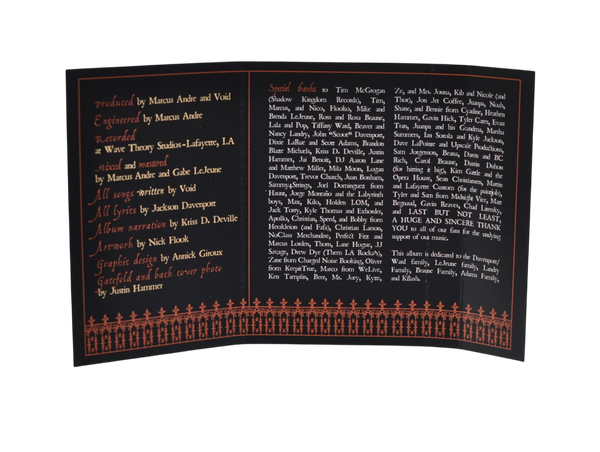 Produced by Marcus Andre and Void
Engineered by Marcus Andre
Recorded
at Wave Theory Studios-Lafayette, LA
Mixed and mastered
by Marcus Andre and Gabe LeJeune
All songs written by Void
All lyrics by Jackson Davenport
Album narration by Kriss D. Deville
Artwork by Nick Flook
Graphic design by Annick Giroux
Gatefold and back cover photo
by Justin Hammer
Special thanks to Tim McGrogan
(Shadow Kingdom Records), Tim,
Marcus, and Nico, Flooko, Mike and
Brenda LeJeune, Ross and Rosa Braune,
Lala and Pop, Tiffany Ward, Beaver and
Nancy Landry, John "Scoot" Davenport,
Dixie LaRue and Scott Adams, Brandon
Blaze Michaels, Kriss D. Deville, Justin
Hammer, Jai Benoit, DJ Aaron Lane
and Matthew Miller, Mila Moon, Logan
Davenport, Trevor Church, Juan Bonham,
Sammy4Strings, Joel Dominguez from
Haunt, Jorge Montaño and the Labyrinth
boys, Max, Kilo, Holden I.O.M, and
Jack Torry, Kyle Thomas and Exhorder,
Apollo, Christian, Speed, and Bobby from
Heraklelon (and Fafa), Christian Larson,
NoClass Merchandise, Perfect Fitz and
Marcus Lordes, Thom, Lane Hogue, JJ
Savage, Drew Dye (Them LA Rocks!),
Zane from Charged Noise Booking, Oliver
from KeepitTrue, Marco from WeLive,
Ken Tamplin, Beer, Mr. Joey, Kyze,
Ze, and Mrs. Jonna, Kib and Nicole (and
Thor), Jon Jet Coffee, Juanpa, Noah,
Shane, and Bennie from Cyadine, Heathen
Hammer, Gavin Hick, Tyler Cates, Evan
Tran, Juanpa and his Grandma, Marsha
Summers, Ian Sonola and Kyle Jackson,
Dave LaPointe and Upscale Productions,
Sam Jorgenson, Beans, Daren and BC
Rich, Carol Braune, Dustin Duhon
(for hitting it big), Kim Gattle and the
Opera House, Sean Christiansen, Martin
and Lafayette Custom (for the paintjob),
Tyler and Sam from Midnight Vice, Matt
Begnaud, Gavin Reaves, Chad Linsky,
and LAST BUT NOT LEAST,
A HUGE AND SINCERE THANK
YOU to all of our fans for the undying
support of our music.
This album is dedicated to the Davenport/
Ward family, LeJeune family, Landry
Family, Braune Family, Adams Family,
and Kflash.